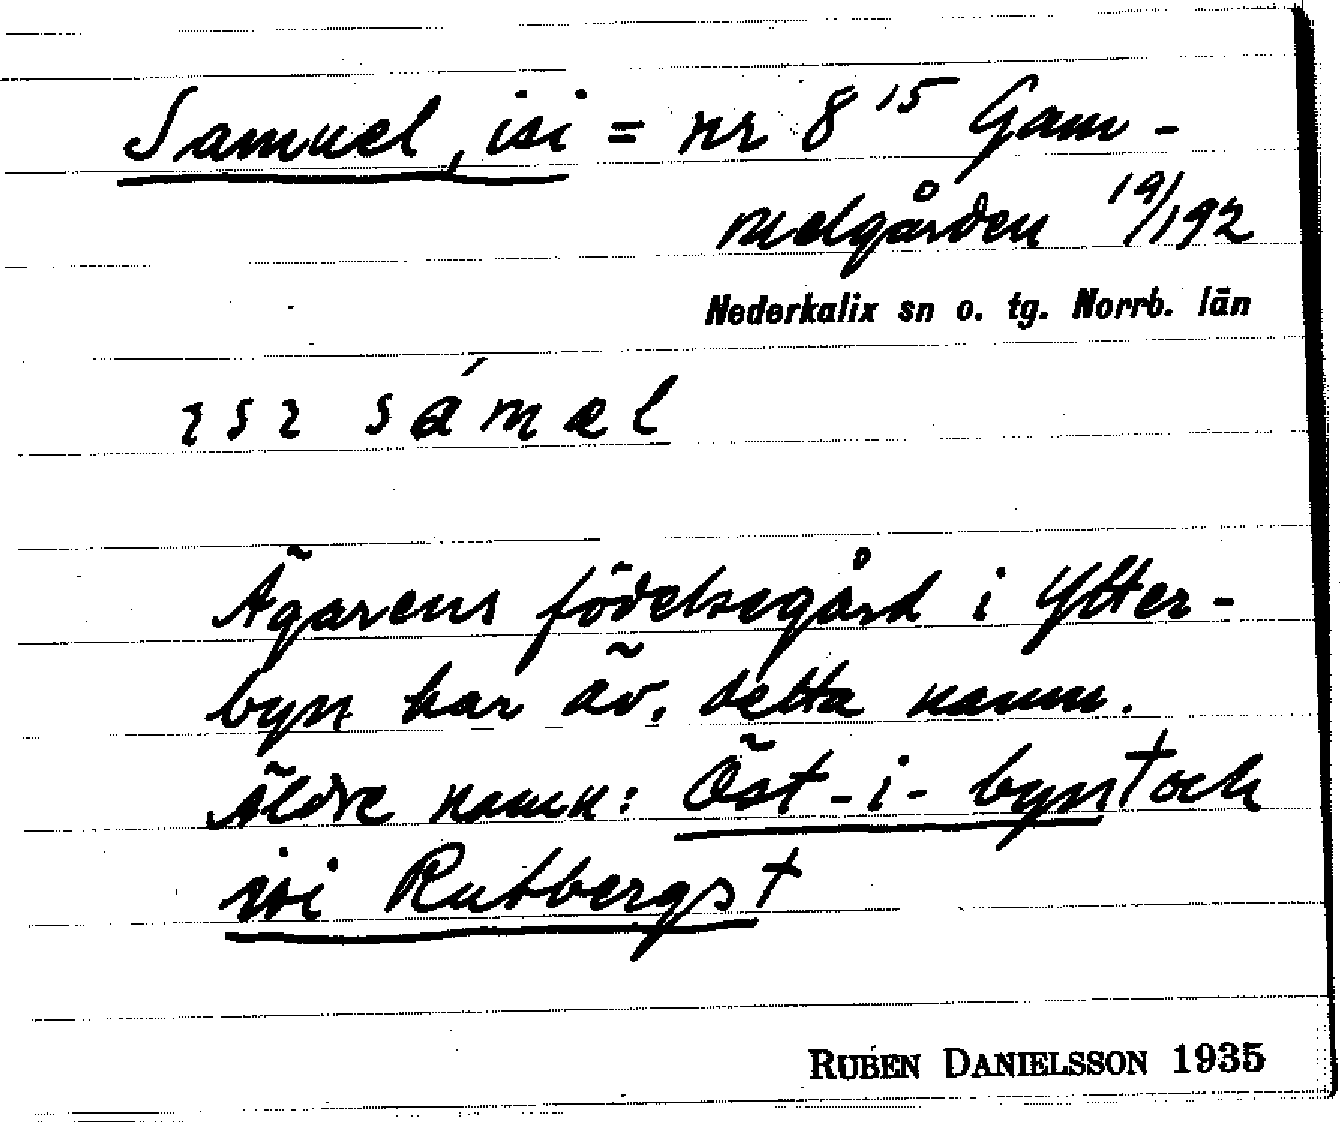 Samuel, isi = nr 8¹⁵ Gam-
melgården 19/192
Nederkalix sn o. tg. Norrb. län
ɪsɪ sámæl
Ägarens födelsegård i Ytter-
byn har äv. detta namn.
Äldre namn: Öst-i-byn† och
isi Rutbergs†
RUBEN DANIELSSON 1935